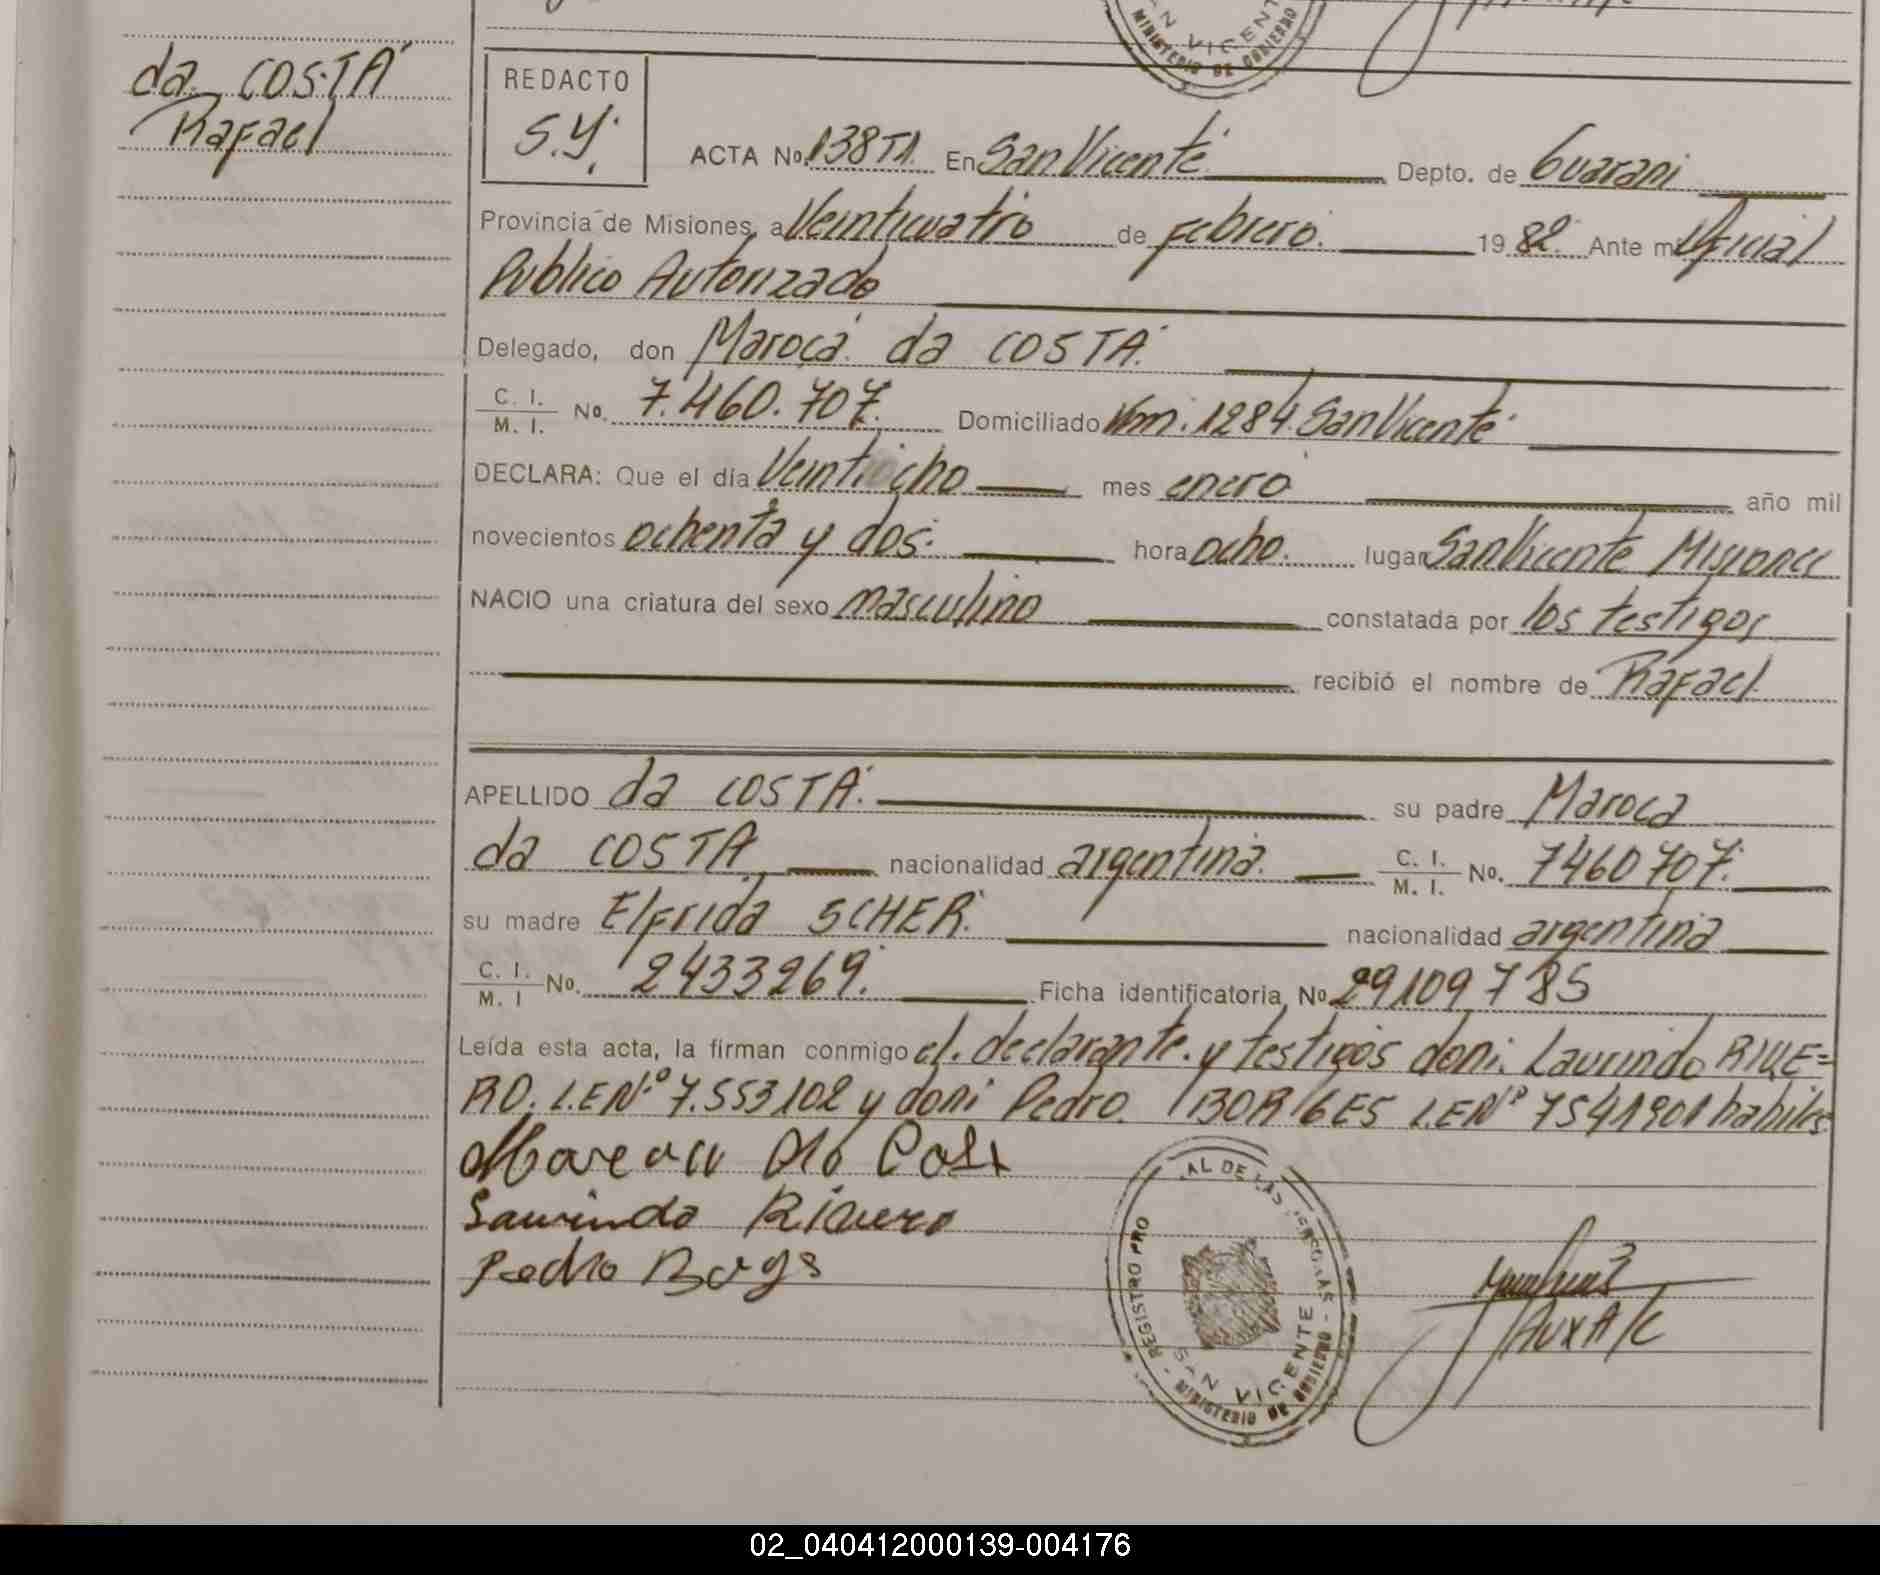 da COSTA
Rafael
REDACTO
S.Y.
ACTA No. 138 T1. En San Vicente Depto. de Guarani
Provincia de Misiones, a Veinticuatro de Febrero. 19 82. Ante mi Oficial
Publico Autorizado
Delegado, don Maroca da COSTA.
C. I. / M. I. No. 7.460.707. Domiciliado Km. 1284 San Vicente
DECLARA: Que el día Veintiocho mes enero año mil
novecientos ochenta y dos. hora ocho. lugar San Vicente Misiones
NACIO una criatura del sexo masculino constatada por los testigos
recibió el nombre de Rafael
APELLIDO da COSTA. su padre Maroca
da COSTA nacionalidad argentina. C. I. / M. I. No. 7460707.
su madre Elfrida SCHER. nacionalidad argentina
C. I. / M. I No. 2433269. Ficha identificatoria, No 29109785
Leída esta acta, la firman conmigo el. declarante. y testigos don: Laurindo RIUE=
RO. L.E Nº 7.553102 y don: Pedro. BORGES L.E Nº 7541901 habiles
Maroca Da Cost
Laurindo Riquero
Pedro Borgs
REGISTRO PRO AL DE LAS PERSONAS
SAN VICENTE
MINISTERIO DE GOBIERNO
Aux A/C
SAN VICENT
MINISTERIO DE GOBIERNO
02_040412000139-004176